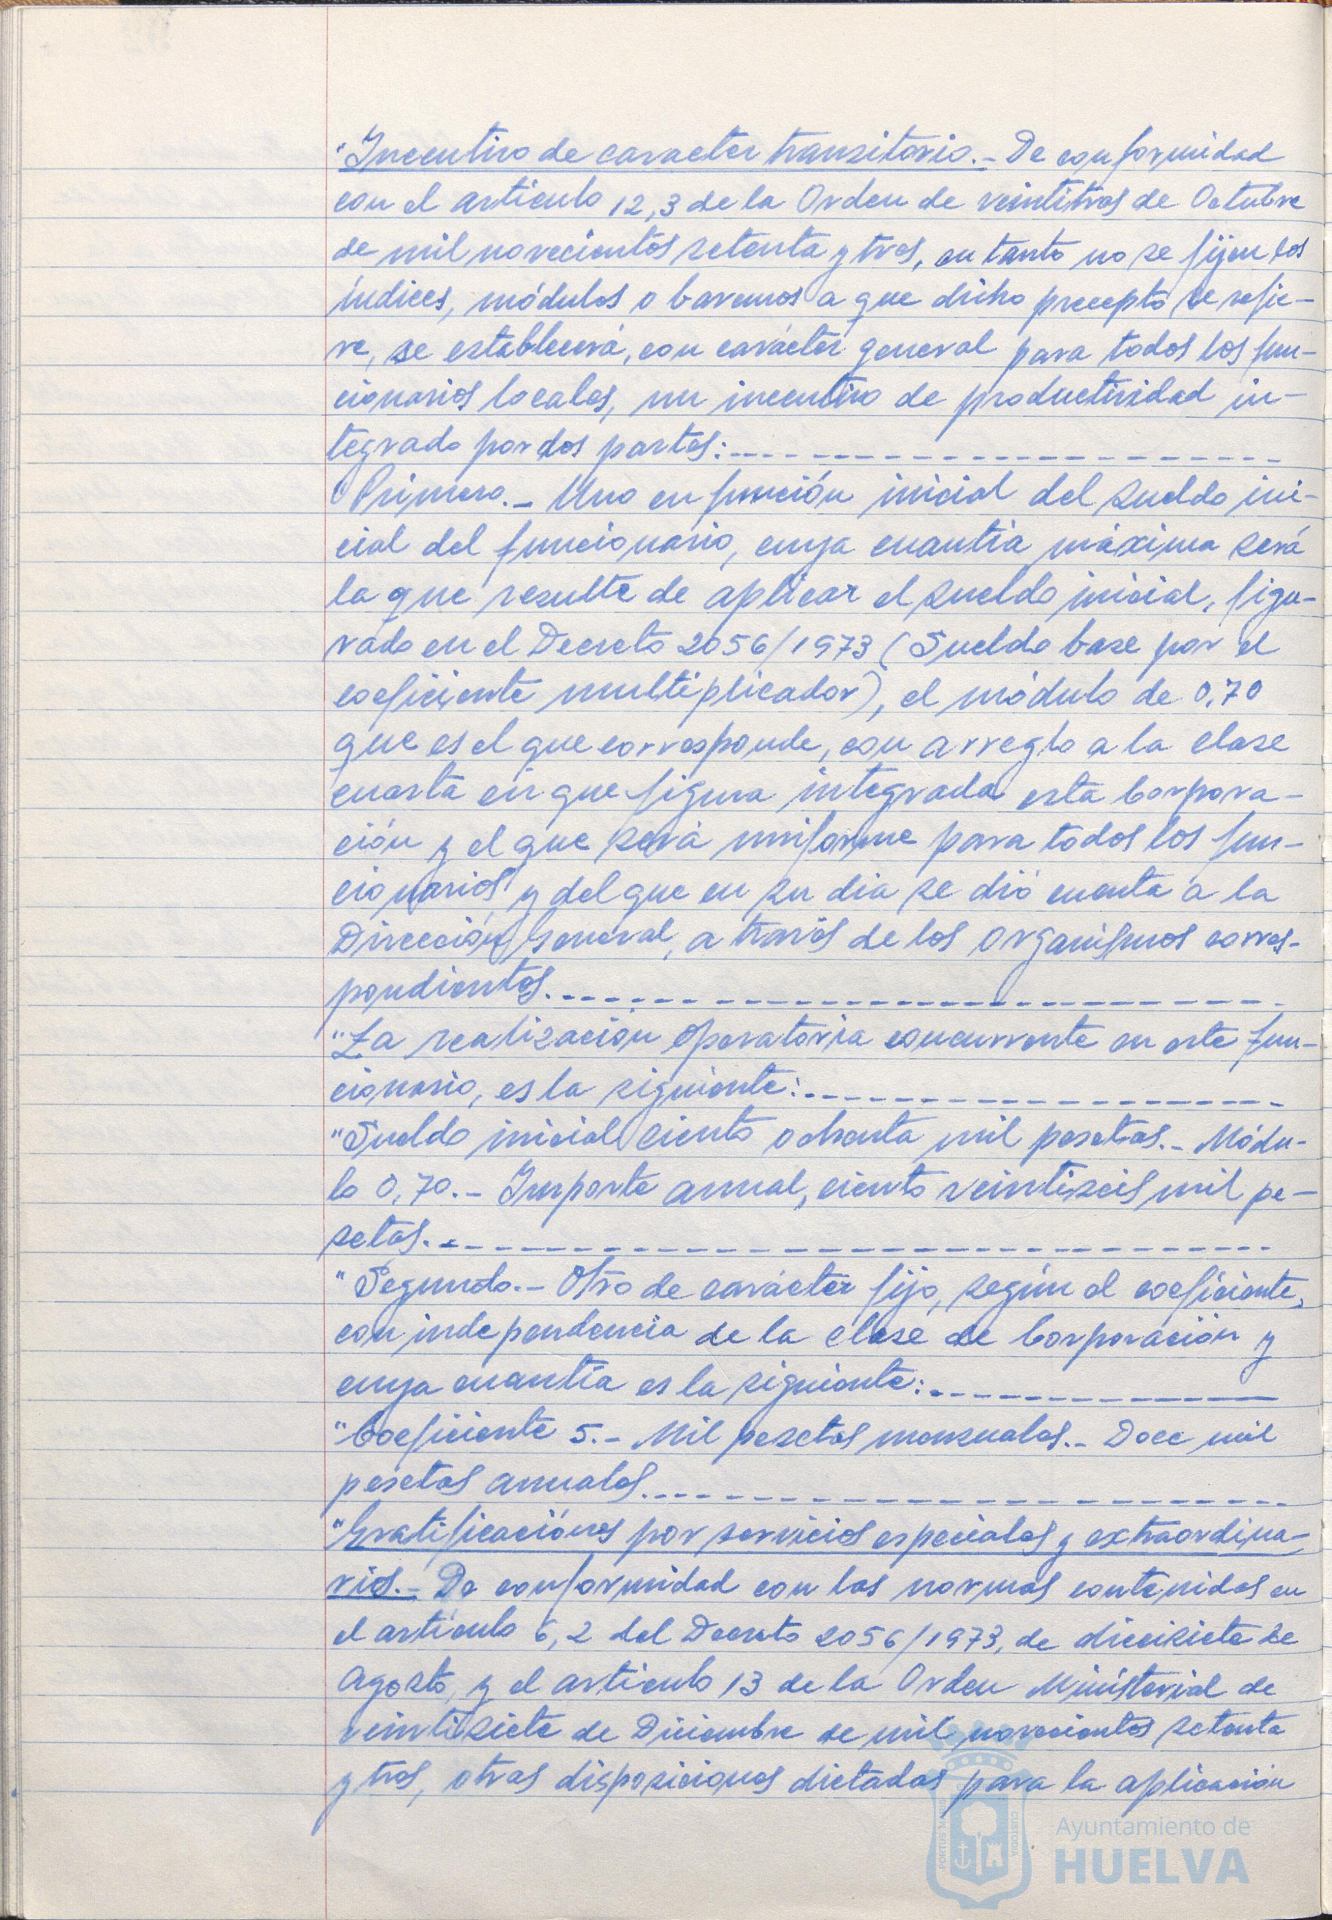 "Incentivo de caracter transitorio.- De conformidad
con el artículo 12,3 de la Orden de veintitres de Octubre
de mil novecientos setenta y tres, en tanto no se fijen los
índices, módulos o baremos a que dicho precepto se refie-
re, se establecerá, con carácter general para todos los fun-
cionarios locales, un incentivo de productividad in-
tegrado por dos partes:
"Primero.- Uno en función inicial del sueldo ini-
cial del funcionario, cuya cuantía máxima será
la que resulte de aplicar el sueldo inicial, figu-
rado en el Decreto 2056/1973 (Sueldo base por el
coeficiente multiplicador), el módulo de 0,70
que es el que corresponde, con arreglo a la clase
cuarta en que figura integrada esta Corpora-
ción y el que será uniforme para todos los fun-
cionarios y del que en su dia se dió cuenta a la
Dirección General, a través de los organismos corres-
pondientes.
"La realización operatoria concurrente en este fun-
cionario, es la siguiente:
"Sueldo inicial ciento ochenta mil pesetas.- Módu-
lo 0,70.- Importe anual, ciento veintiseis mil pe-
setas.
"Segundo.- Otro de carácter fijo, según el coeficiente,
con independencia de la clase de Corporación y
cuya cuantía es la siguiente:
"Coeficiente 5.- Mil pesetas mensuales.- Doce mil
pesetas anuales.
"Gratificaciónes por servicios especiales y extraordina-
rios.- De conformidad con las normas contenidas en
el artículo 6,2 del Decreto 2056/1973, de diecisiete de
Agosto, y el articulo 13 de la Orden Ministerial de
veintisiete de Diciembre de mil novecientos setenta
y tres, otras disposiciones dictadas para la aplicación
Ayuntamiento de
HUELVA